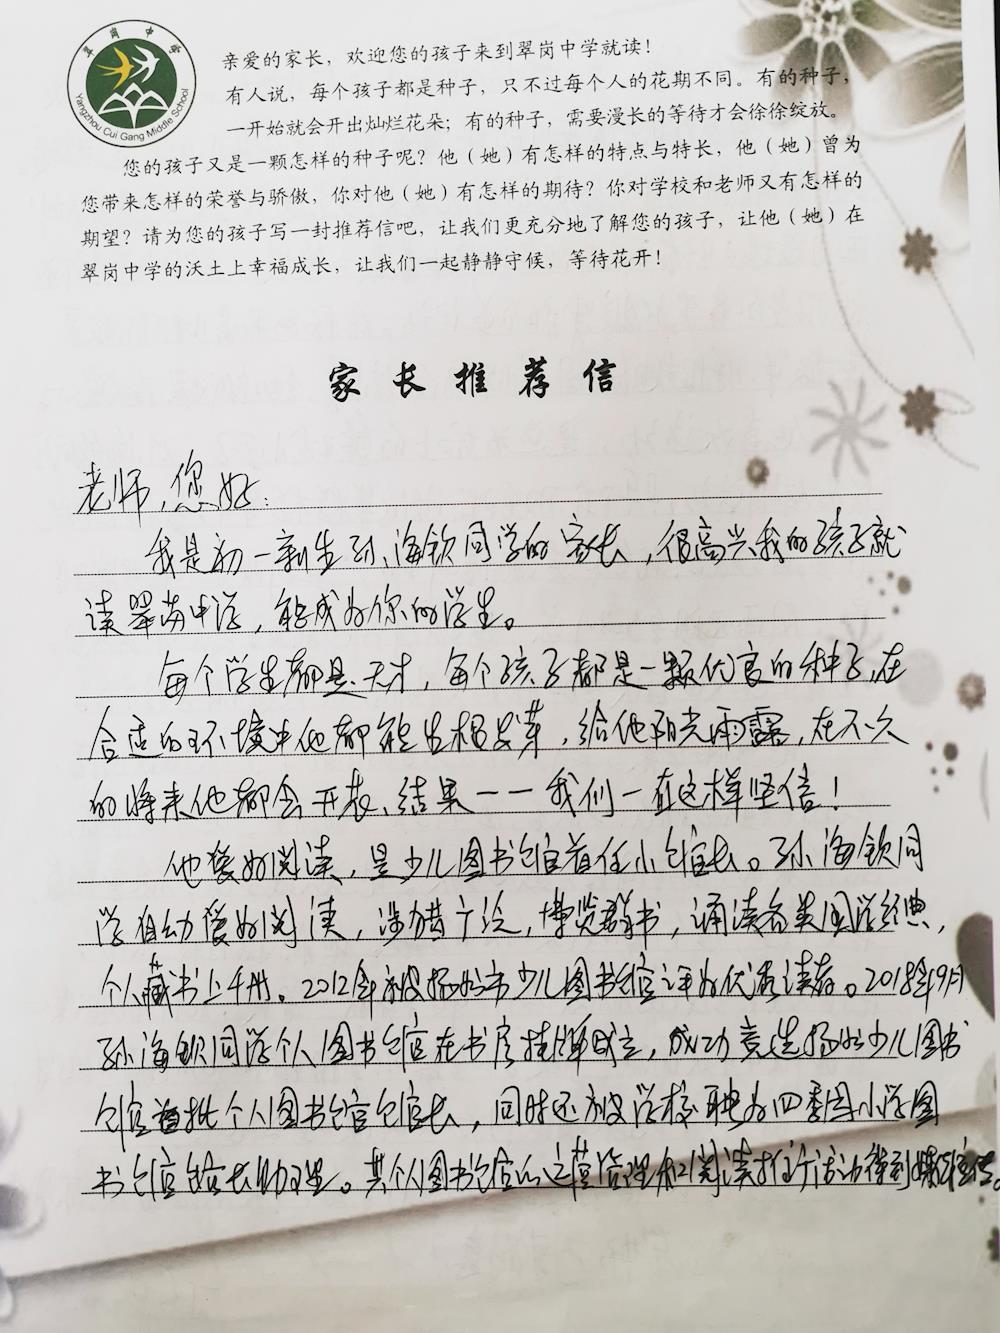 翠岗中学
Yangzhou Cui Gang Middle School
亲爱的家长，欢迎您的孩子来到翠岗中学就读！
有人说，每个孩子都是种子，只不过每个人的花期不同。有的种子，
一开始就会开出灿烂花朵；有的种子，需要漫长的等待才会徐徐绽放。
您的孩子又是一颗怎样的种子呢？他（她）有怎样的特点与特长，他（她）曾为
您带来怎样的荣誉与骄傲，你对他（她）有怎样的期待？你对学校和老师又有怎样的
期望？请为您的孩子写一封推荐信吧，让我们更充分地了解您的孩子，让他（她）在
翠岗中学的沃土上幸福成长，让我们一起静静守候，等待花开！
家长推荐信
老师，您好：
我是初一新生孙海钦同学的家长，很高兴我的孩子就
读翠岗中学，能成为你的学生。
每个学生都是天才，每个孩子都是一颗优良的种子，在
合适的环境中他都能生根发芽，给他阳光雨露，在不久
的将来他都会开花、结果——我们一直这样坚信！
他爱好阅读，是少儿图书馆首任小馆长。孙海钦同
学自幼爱好阅读，涉猎广泛，博览群书，诵读各类国学经典，
个人藏书上千册。2012年被扬州市少儿图书馆评为优秀读者。2018年9月
孙海钦同学个人图书馆在书房挂牌成立，成功竞选扬州少儿图书
馆首批个人图书馆馆长，同时还被学校聘为四季园小学图
书馆馆长助理。其个人图书馆的运营管理和阅读推广活动得到